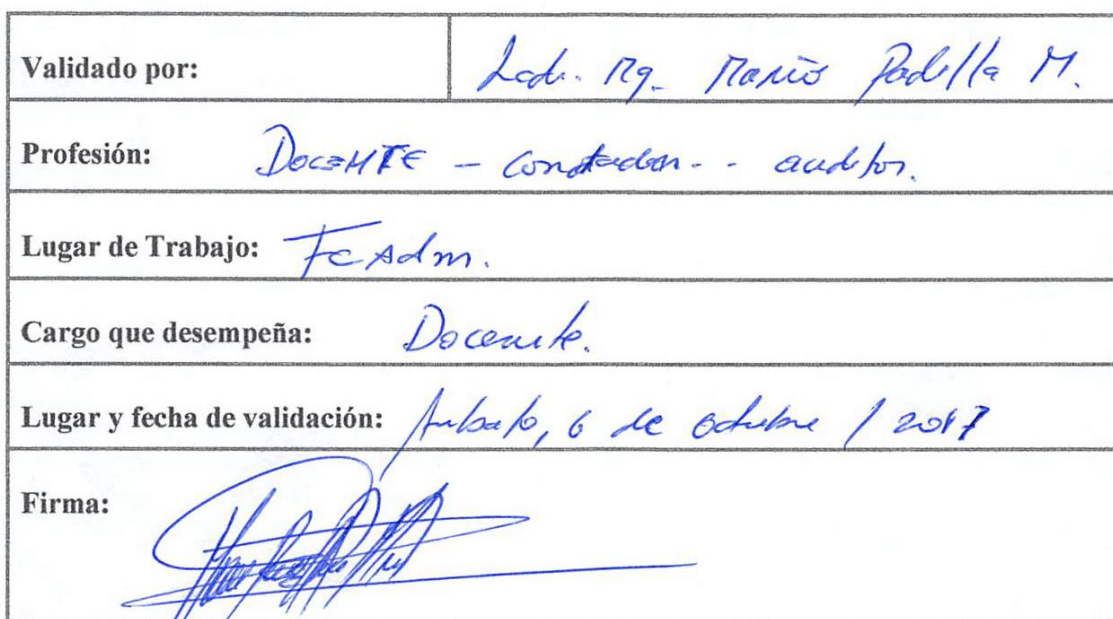 Validado por: Lcdo. Mg. Mario Padilla M.
Profesión: Docente - contador - - auditor.
Lugar de Trabajo: FcAdm.
Cargo que desempeña: Docente.
Lugar y fecha de validación: Ambato, 6 de octubre / 2017
Firma: